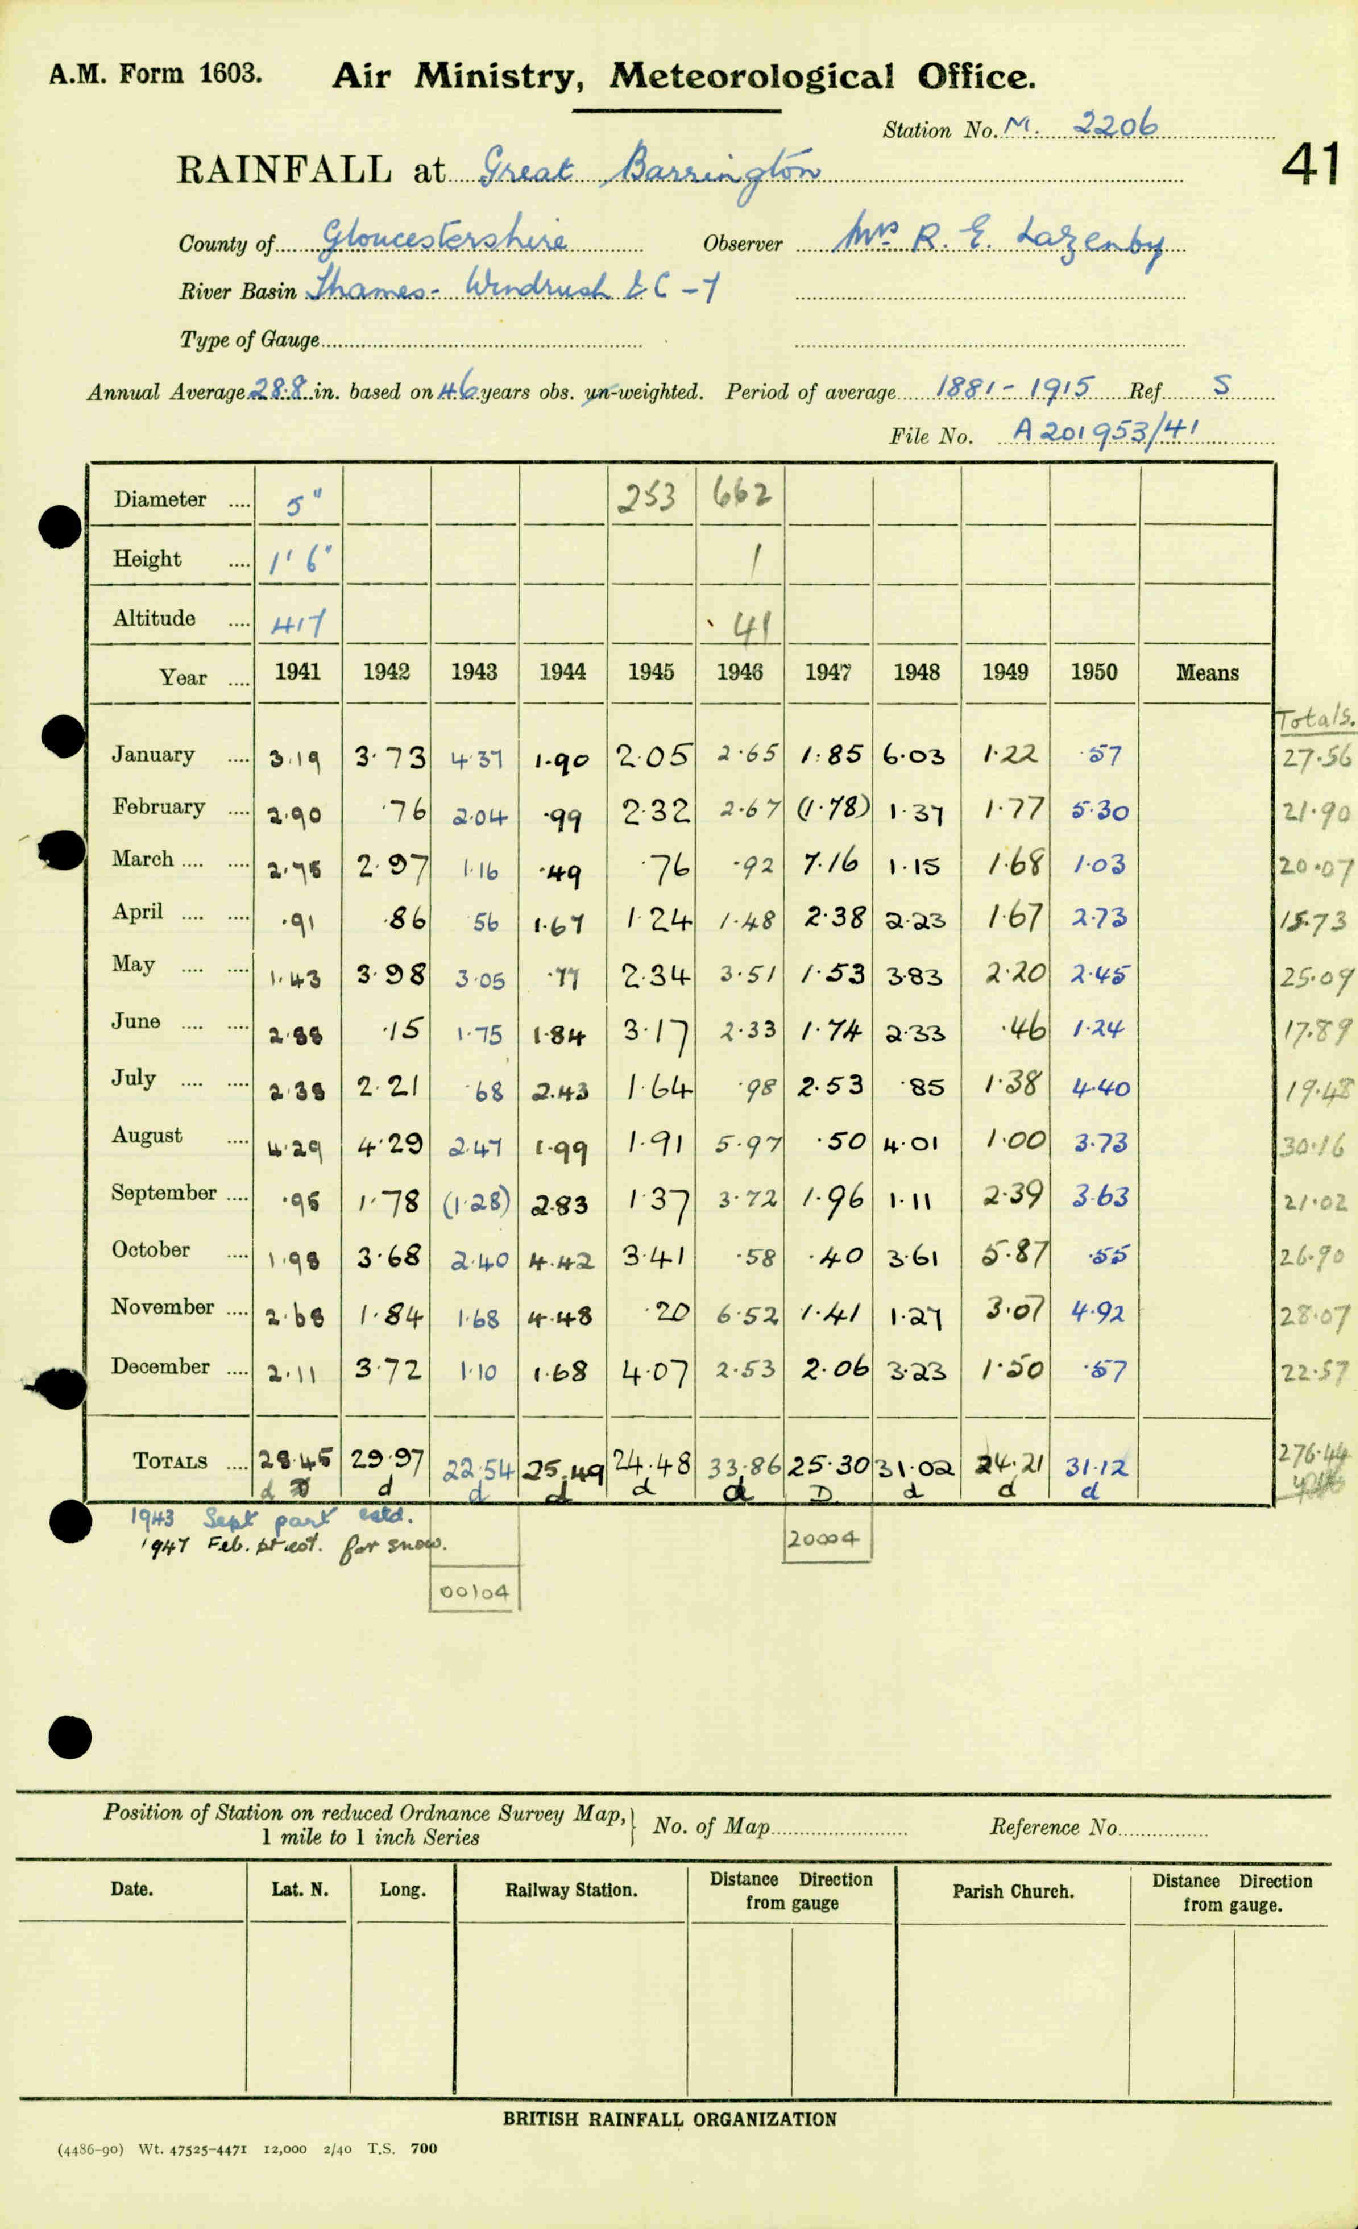 A.M. Form 1603. Air Ministry, Meteorological Office.
Station No. M. 2206
41
RAINFALL at Great Barrington
County of Gloucestershire Observer Mrs R. E. Lazenby
River Basin Thames - Windrush & C - 7
Type of Gauge
Annual Average 28.8 in. based on 46 years obs. un-weighted. Period of average 1881 - 1915 Ref. S
File No. A201953/41
Diameter .... 5" 253 662
Height .... 1' 6" 1
Altitude .... 417 41
Year .... 1941 1942 1943 1944 1945 1946 1947 1948 1949 1950 Means
Totals.
January .... 3.19 3.73 4.37 1.90 2.05 2.65 1.85 6.03 1.22 .57 27.56
February .... 2.90 .76 2.04 .99 2.32 2.67 (1.78) 1.37 1.77 5.30 21.90
March .... .... 2.75 2.97 1.16 .49 .76 .92 7.16 1.15 1.68 1.03 20.07
April .... .... .91 .86 56 1.67 1.24 1.48 2.38 2.23 1.67 2.73 15.73
May .... .... 1.43 3.98 3.05 .77 2.34 3.51 1.53 3.83 2.20 2.45 25.09
June .... .... 2.88 .15 1.75 1.84 3.17 2.33 1.74 2.33 .46 1.24 17.89
July .... .... 2.38 2.21 .68 2.43 1.64 .98 2.53 .85 1.38 4.40 19.48
August .... 4.29 4.29 2.47 1.99 1.91 5.97 .50 4.01 1.00 3.73 30.16
September .... .95 1.78 (1.28) 2.83 1.37 3.72 1.96 1.11 2.39 3.63 21.02
October .... 1.98 3.68 2.40 4.42 3.41 .58 .40 3.61 5.87 .55 26.90
November .... 2.68 1.84 1.68 4.48 .20 6.52 1.41 1.27 3.07 4.92 28.07
December .... 2.11 3.72 1.10 1.68 4.07 2.53 2.06 3.23 1.50 .57 22.57
TOTALS .... 28.45 29.97 22.54 25.49 24.48 33.86 25.30 31.02 24.21 31.12 276.44
d d d d d d D d d d
1943 Sept part estd.
1947 Feb. pt est. for snow. 20004
00104
Position of Station on reduced Ordnance Survey Map, 1 mile to 1 inch Series } No. of Map Reference No.
Date. Lat. N. Long. Railway Station. Distance Direction from gauge Parish Church. Distance Direction from gauge.
BRITISH RAINFALL ORGANIZATION
(4486-90) Wt. 47525-4471 12,000 2/40 T.S. 700